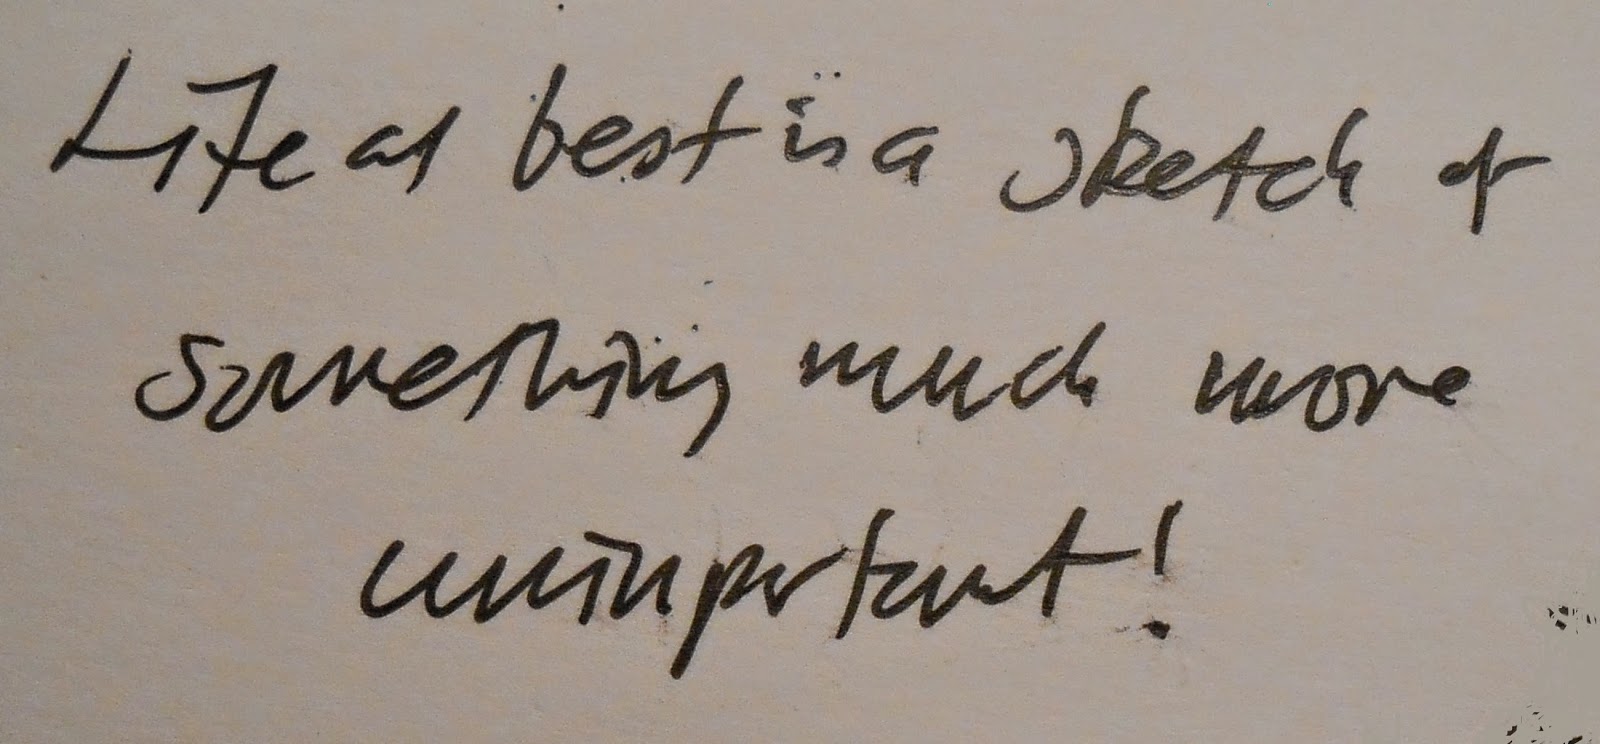 Life at best is a sketch of
something much more
unimportant!